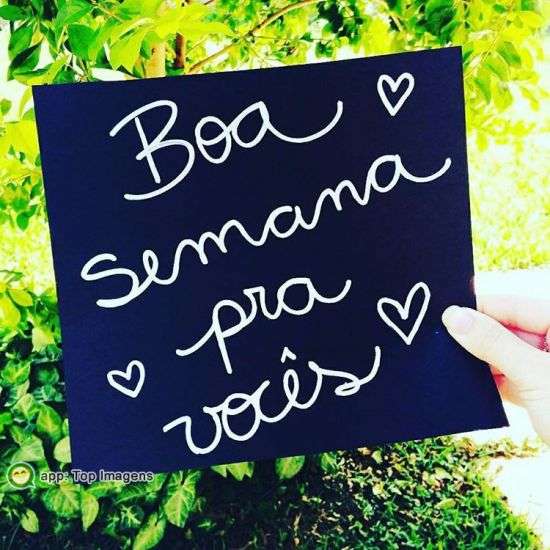 Boa
semana
pra
vocês
app: Top Imagens